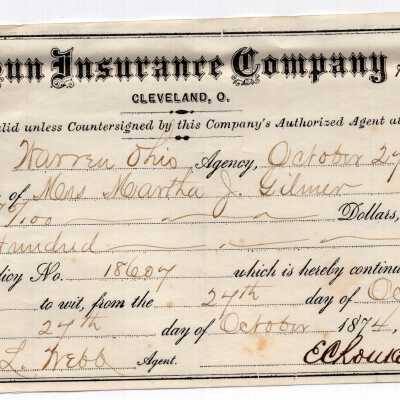 un Insurance Company
CLEVELAND, O.
alid unless Countersigned by this Company's Authorized Agent at
Warren Ohio Agency, October 27
of Mrs Martha J. Gilmer
/100 Dollars,
Hundred
icy No. 18607 which is hereby continu
to wit, from the 27th day of Oc
27th day of October 1874,
L. Webb Agent.